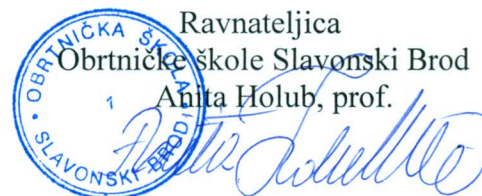 Ravnateljica
Obrtničke škole Slavonski Brod
Anita Holub, prof.
OBRTNIČKA ŠKOLA
1
SLAVONSKI BROD